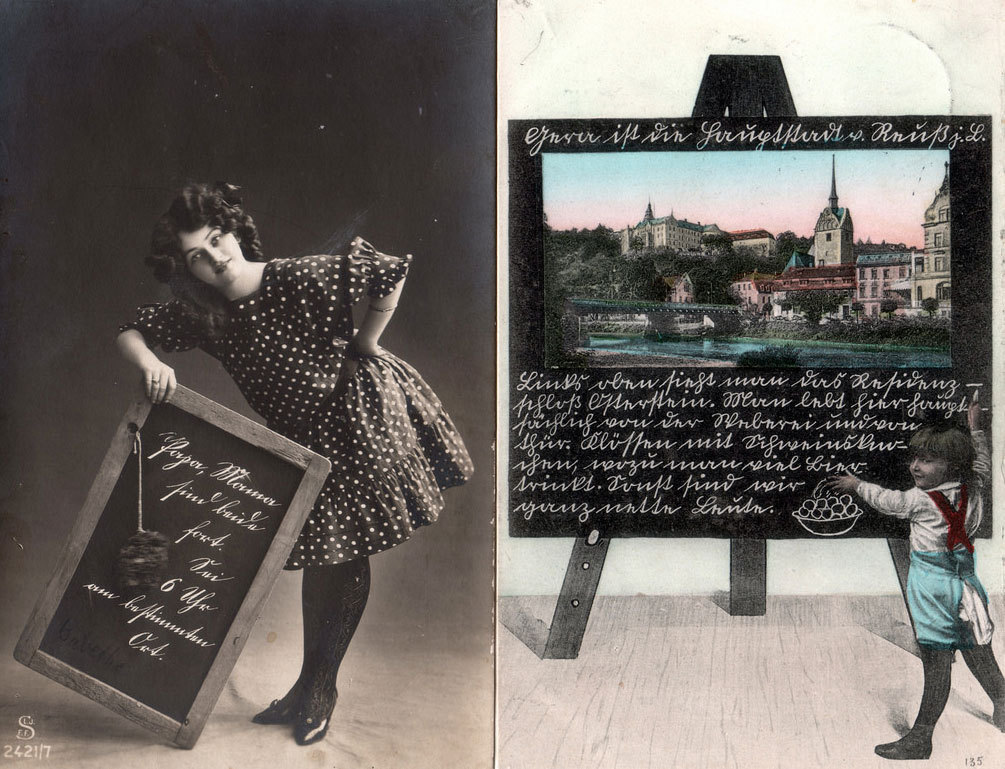 Papa, Mama
sind beide
fort.
Sei
6 Uhr
am bestimmten
Ort.
S
2421/7
Gera ist die Hauptstadt v. Reuß j. L.
Links oben sieht man das Residenz-
schloß Osterstein. Man lebt hier haupt-
sächlich von der Weberei und von
thür. Klössen mit Schweinskno-
chen, wozu man viel Bier
trinkt. Sonst sind wir
ganz nette Leute.
135